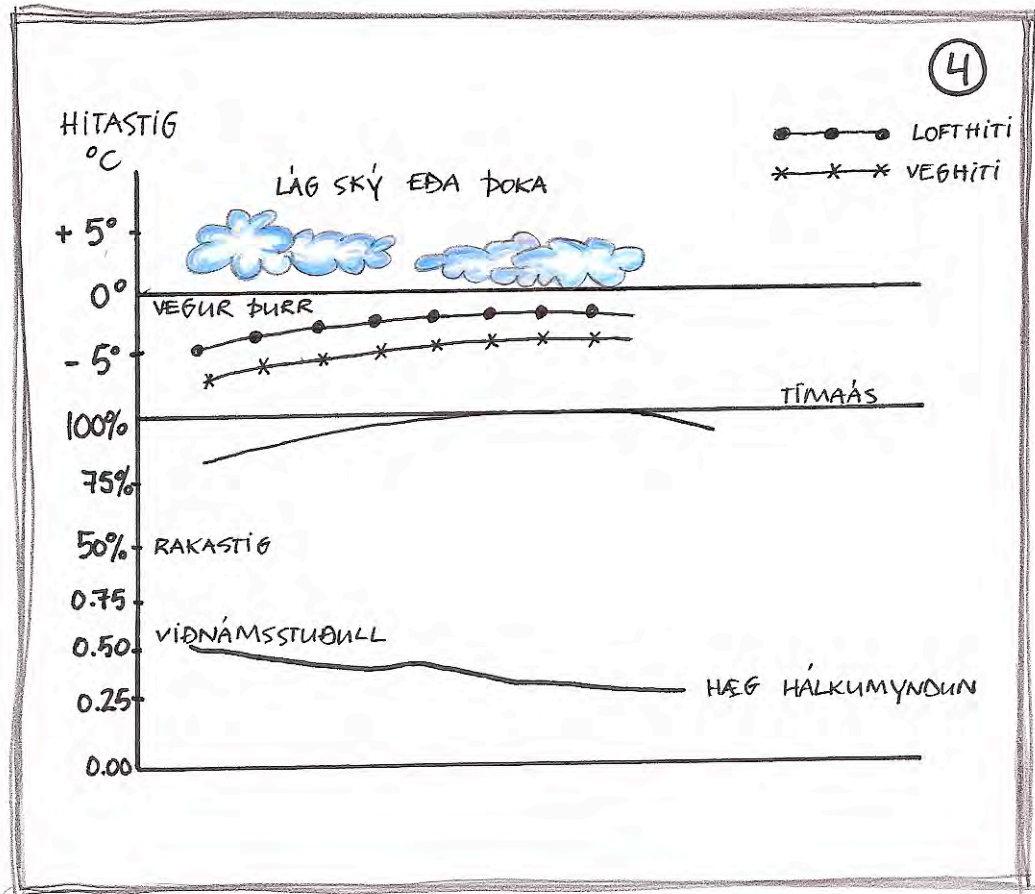 4
HITASTIG
°C
LOFTHITI
VEGHITI
LÁG SKÝ EÐA ÞOKA
+ 5°
0°
VEGUR ÞURR
- 5°
TÍMAÁS
100%
75%
50%
RAKASTIG
0.75
VIÐNÁMSSTUÐULL
0.50
HÆG HÁLKUMYNDUN
0.25
0.00